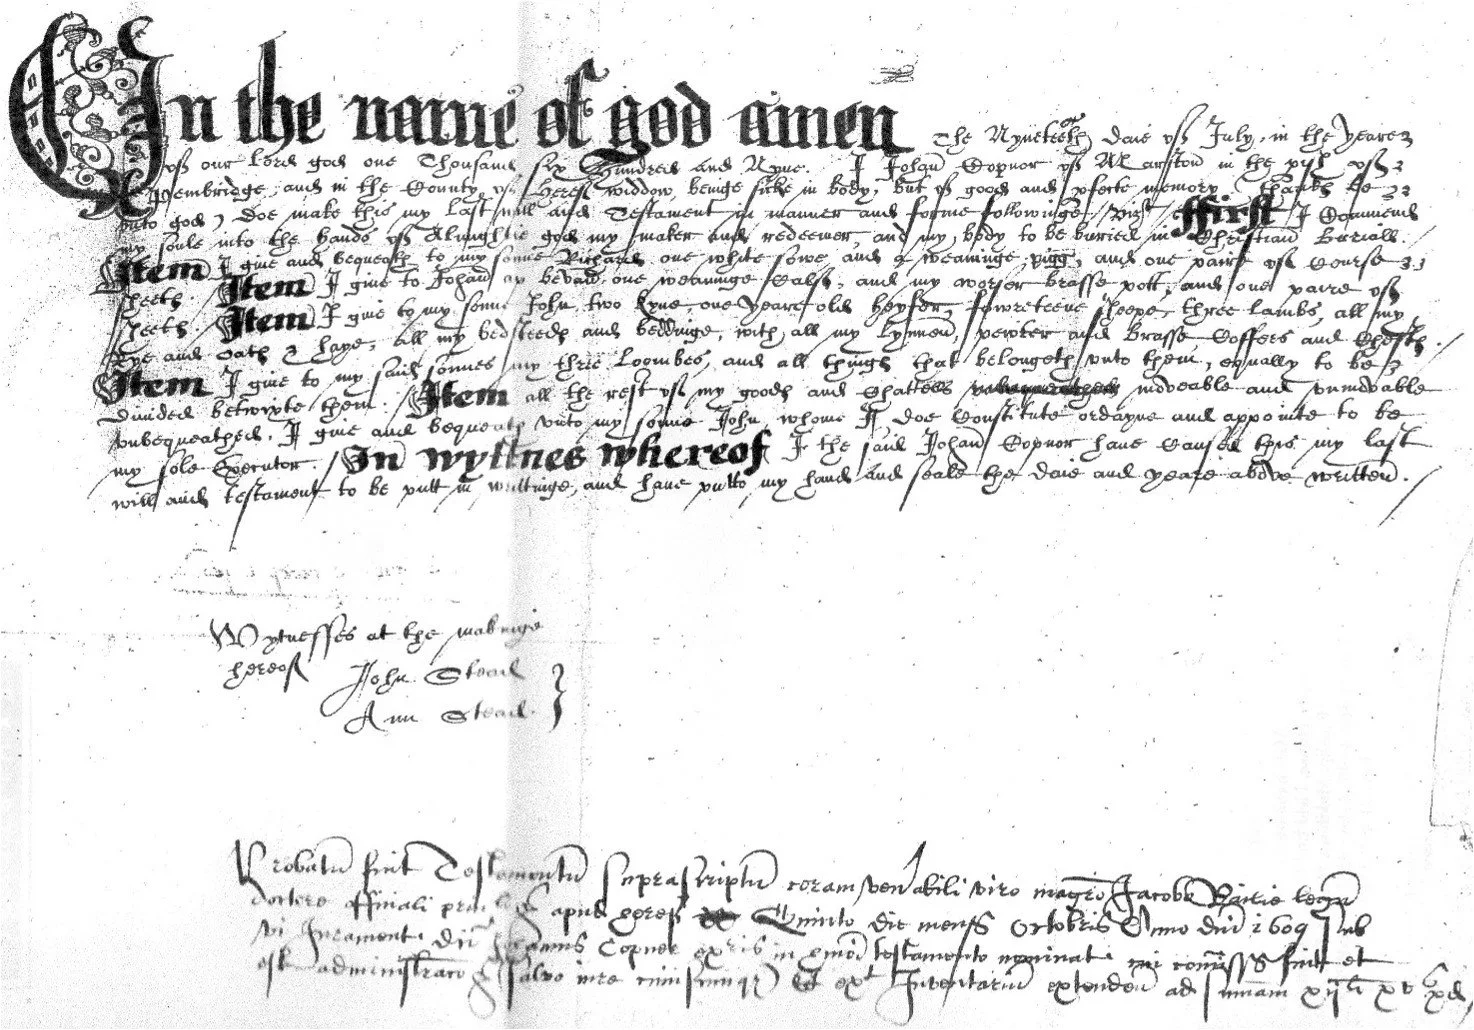 In the name of god amen The Nyneteeth daie of July, in the yeare
of our Lord god one Thousand six Hundred and Nyne. I Johan Copnor of Marston in the pish of
Pembridge, and in the County of Heref widdow, beinge sicke in body, but of good and pfecte memory thanks be
vnto god) doe make this my last will and Testament in manner and forme followinge, vizt ffirst I Commend
my soule into the hands of Almightie god my maker and redeemer, and my body to be buried in Christian Buriall.
Item I giue and bequeath to my sonne Richard one white sowe, and a weaninge pigg, and one paire of Course
sheets. Item I giue to Johan ap bevan one weaninge Calf, and my worser brasse pott, and one paire of
sheets. Item I giue to my sonne John two kyne one yeare old heyfer, fowreteene sheepe, three lambs, all my
Rye and Oats & haye, all my bedsteeds and beddinge, with all my Lynnen, pewter and Brasse Coffers and Chests.
Item I giue to my said sonnes my three Loombes, and all things that belongeth vnto them, equally to be
diuided betwixte them. Item all the rest of my goods and Chattells moveable and vnmovable
vnbequeathed, I giue and bequeath vnto my sonne John, whome I doe Constitute ordayne and appointe to be
my sole Executor. In wyttnes whereof I the said Johan Copnor haue Caused this my last
will and testament to be putt in writtinge, and haue putto my hand and seale the daie and yeare above written.
Wytnesses at the makinge
hereof John Stead
Ann Stead
Probatu fuit Testamentu suprascriptu coram venabili viro magro Jacobo legu
doctore officiali apud heref Quinto die mens Octobris Anno dni 1609 sub
vi Jurament Johannis Copner exris in testamento nominat comiss fuit et
est administraco (salvo iure cuiuscunq) Et ext Inventariu extenden ad summam xijli xvs xd